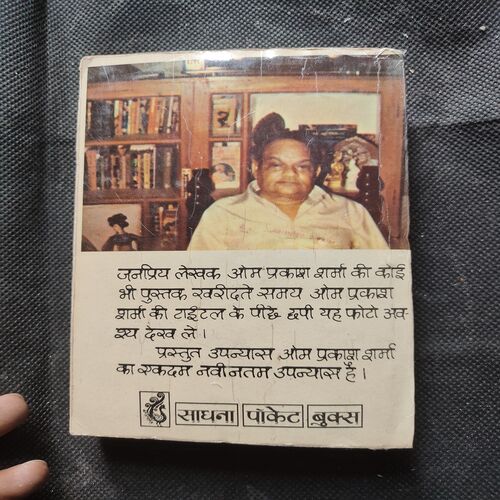 जनप्रिय लेखक ओम प्रकाश शर्मा की कोई
भी पुस्तक खरीदते समय ओम प्रकाश
शर्मा की टाईटल के पीछे छपी यह फोटो अव-
श्य देख ले।
प्रस्तुत उपन्यास ओम प्रकाश शर्मा
का एकदम नवीनतम उपन्यास है।
साधना पॉकेट बुक्स